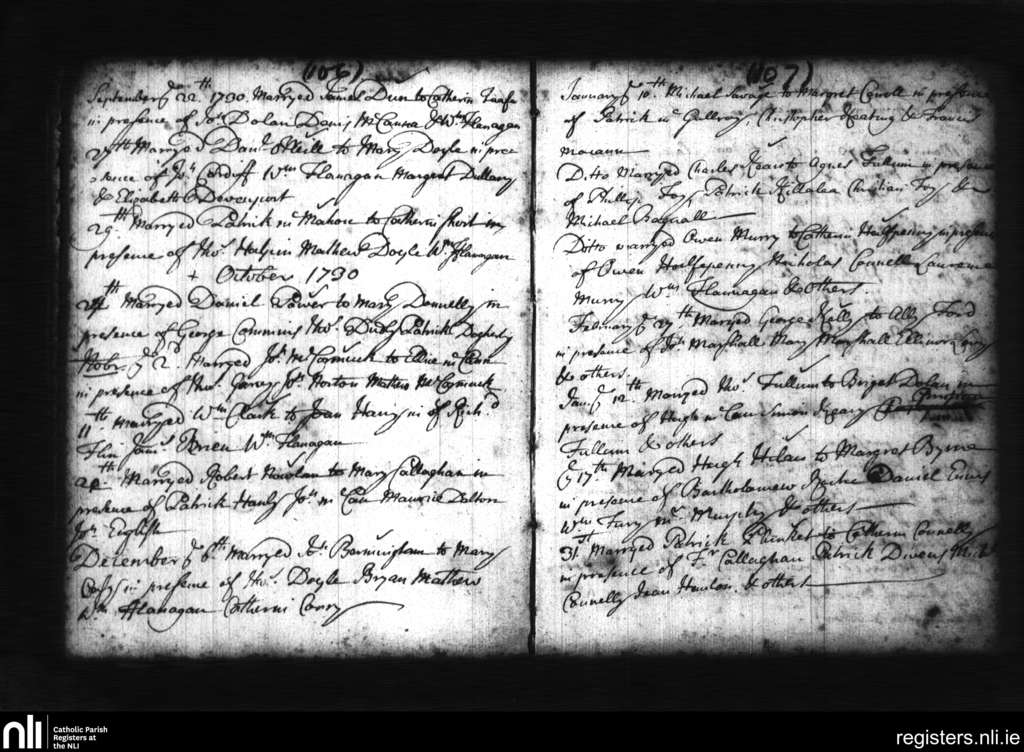 (106)
September ye 22th 1730. Marryed James Dun to Catherin Taafe
in presence of Jon Dolan Dan: Mc Canna & Wm Flanagan
27th Marryed Danl ONeile to Mary Doyle in pre
sence of Jon Cardiff Wm Flanagan Margret Dullany
& Elizabeth Devenport
29th Marryed Patrick mc Mahon to Catherin Short in
presence of Thos Halpin Mathew Doyle Wm Flanagan
+ October 1730
24th Marryed Daniel Power to Mary Donnelly in
presence of George Commins Thos Patrick
Nobr ye 2d Marryed Jon mc Cormuck to Ellin mc
in presence of Thos Garvey Jon Norton Mathew McCormuck
11th Marryed Wm Clark to Joan in of Rich:d
Flin Jams Brien Wm Flanagan
24th Marryed Robert Nowlan to Mary Callaghan in
presence of Patrick Hanly Jon mc Can Maurice Dalton
Jon English
December ye 6th Marryed Jon Barmingham to Mary
Casy in presence of Thos Doyle Bryan Mathew
Wm Flanagan Catherin Carry
(107)
January ye 10th Michael Savage to Margret in presence
of Patrick mc Christopher Keating & Francis
Ditto Marryed Charles to Agnes Fullum in presence
of Phillip Foy, Patrick Killalea Christian Foy, &
Michael Bagnall
Ditto marryed Owen Murry to Catherin Halfpenny in presence
of Owen Halfepenny Nicholas Connell Laurence
Murry Wm Flannagan & others.
February ye 27th Marryed George Kelly to Ally Ford
in presence of Jon Marshall Mary Marshall Ellinor
& others.
Jan: ye 12th Marryed Thos Fullum to Briget Dolan in
presence of Hugh mc Can Simon
Fullum & others
ye 17th Marryed Hugh to Margret Byrne
in presence of Bartholomew Daniel
Wm Fury Murphy & others
31st Marryed Patrick Plunket to Catherin Connelly
in presence of Fr Callaghan Patrick Divens
Connelly Joan Hanlon & others
nli
Catholic Parish
Registers at
the NLI
registers.nli.ie